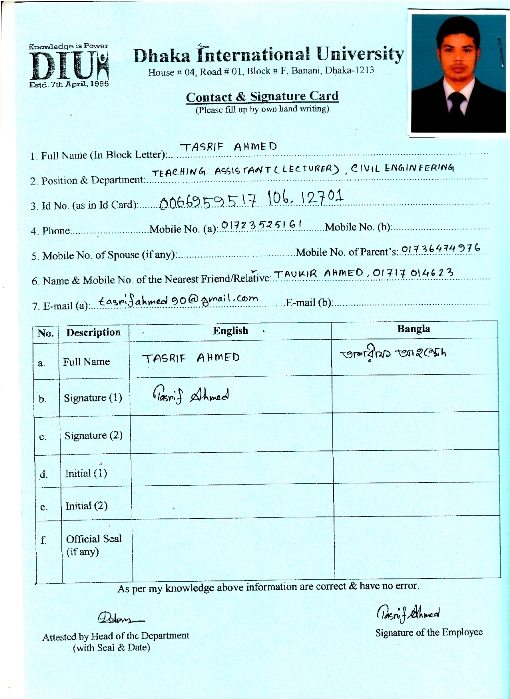 Knowledge is Power
DIU
Estd. 7th April, 1995
Dhaka International University
House # 04, Road # 01, Block # F, Banani, Dhaka-1213
Contact & Signature Card
(Please fill up by own hand writing)
1. Full Name (In Block Letter):.. TASRIF AHMED
2. Position & Department: TEACHING ASSISTANT (LECTURER), CIVIL ENGINEERING
3. Id No. (as in Id Card):..... 0066959517 106, 12701
4. Phone............Mobile No. (a): 01723525161 Mobile No. (b):
5. Mobile No. of Spouse (if any):............Mobile No. of Parent's: 01736474976
6. Name & Mobile No. of the Nearest Friend/Relative: TAUKIR AHMED, 01717014623
7. E-mail (a): tasrifahmed90@gmail.com E-mail (b):
No. Description English Bangla
a. Full Name TASRIF AHMED তাসরীফ আহমেদ
b. Signature (1) Tasrif Ahmed
c. Signature (2)
d. Initial (1)
e. Initial (2)
f. Official Seal
(if any)
As per my knowledge above information are correct & have no error.
Tasrif Ahmed
Attested by Head of the Department
(with Seal & Date)
Signature of the Employee